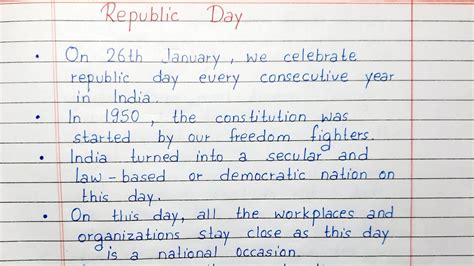 Republic Day
• On 26th January, we celebrate
republic day every consecutive year
in India.
• In 1950, the constitution was
started by our freedom fighters.
• India turned into a secular and
law-based or democratic nation on
this day.
• On this day, all the workplaces and
organizations stay close as this day
is a national occasion.